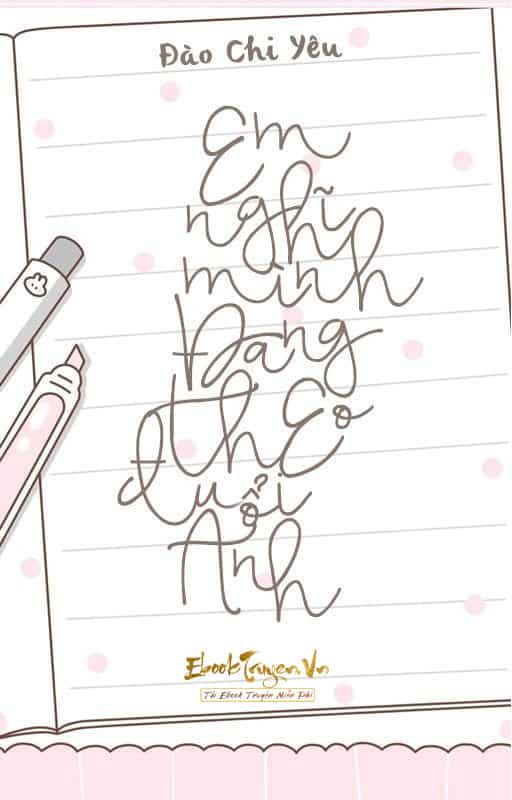 Đào Chi Yêu
Em
nghĩ
mình
Đang
thEo
đuổi
Anh
EbookTruyen.Vn
Tải Ebook Truyện Miễn Phí